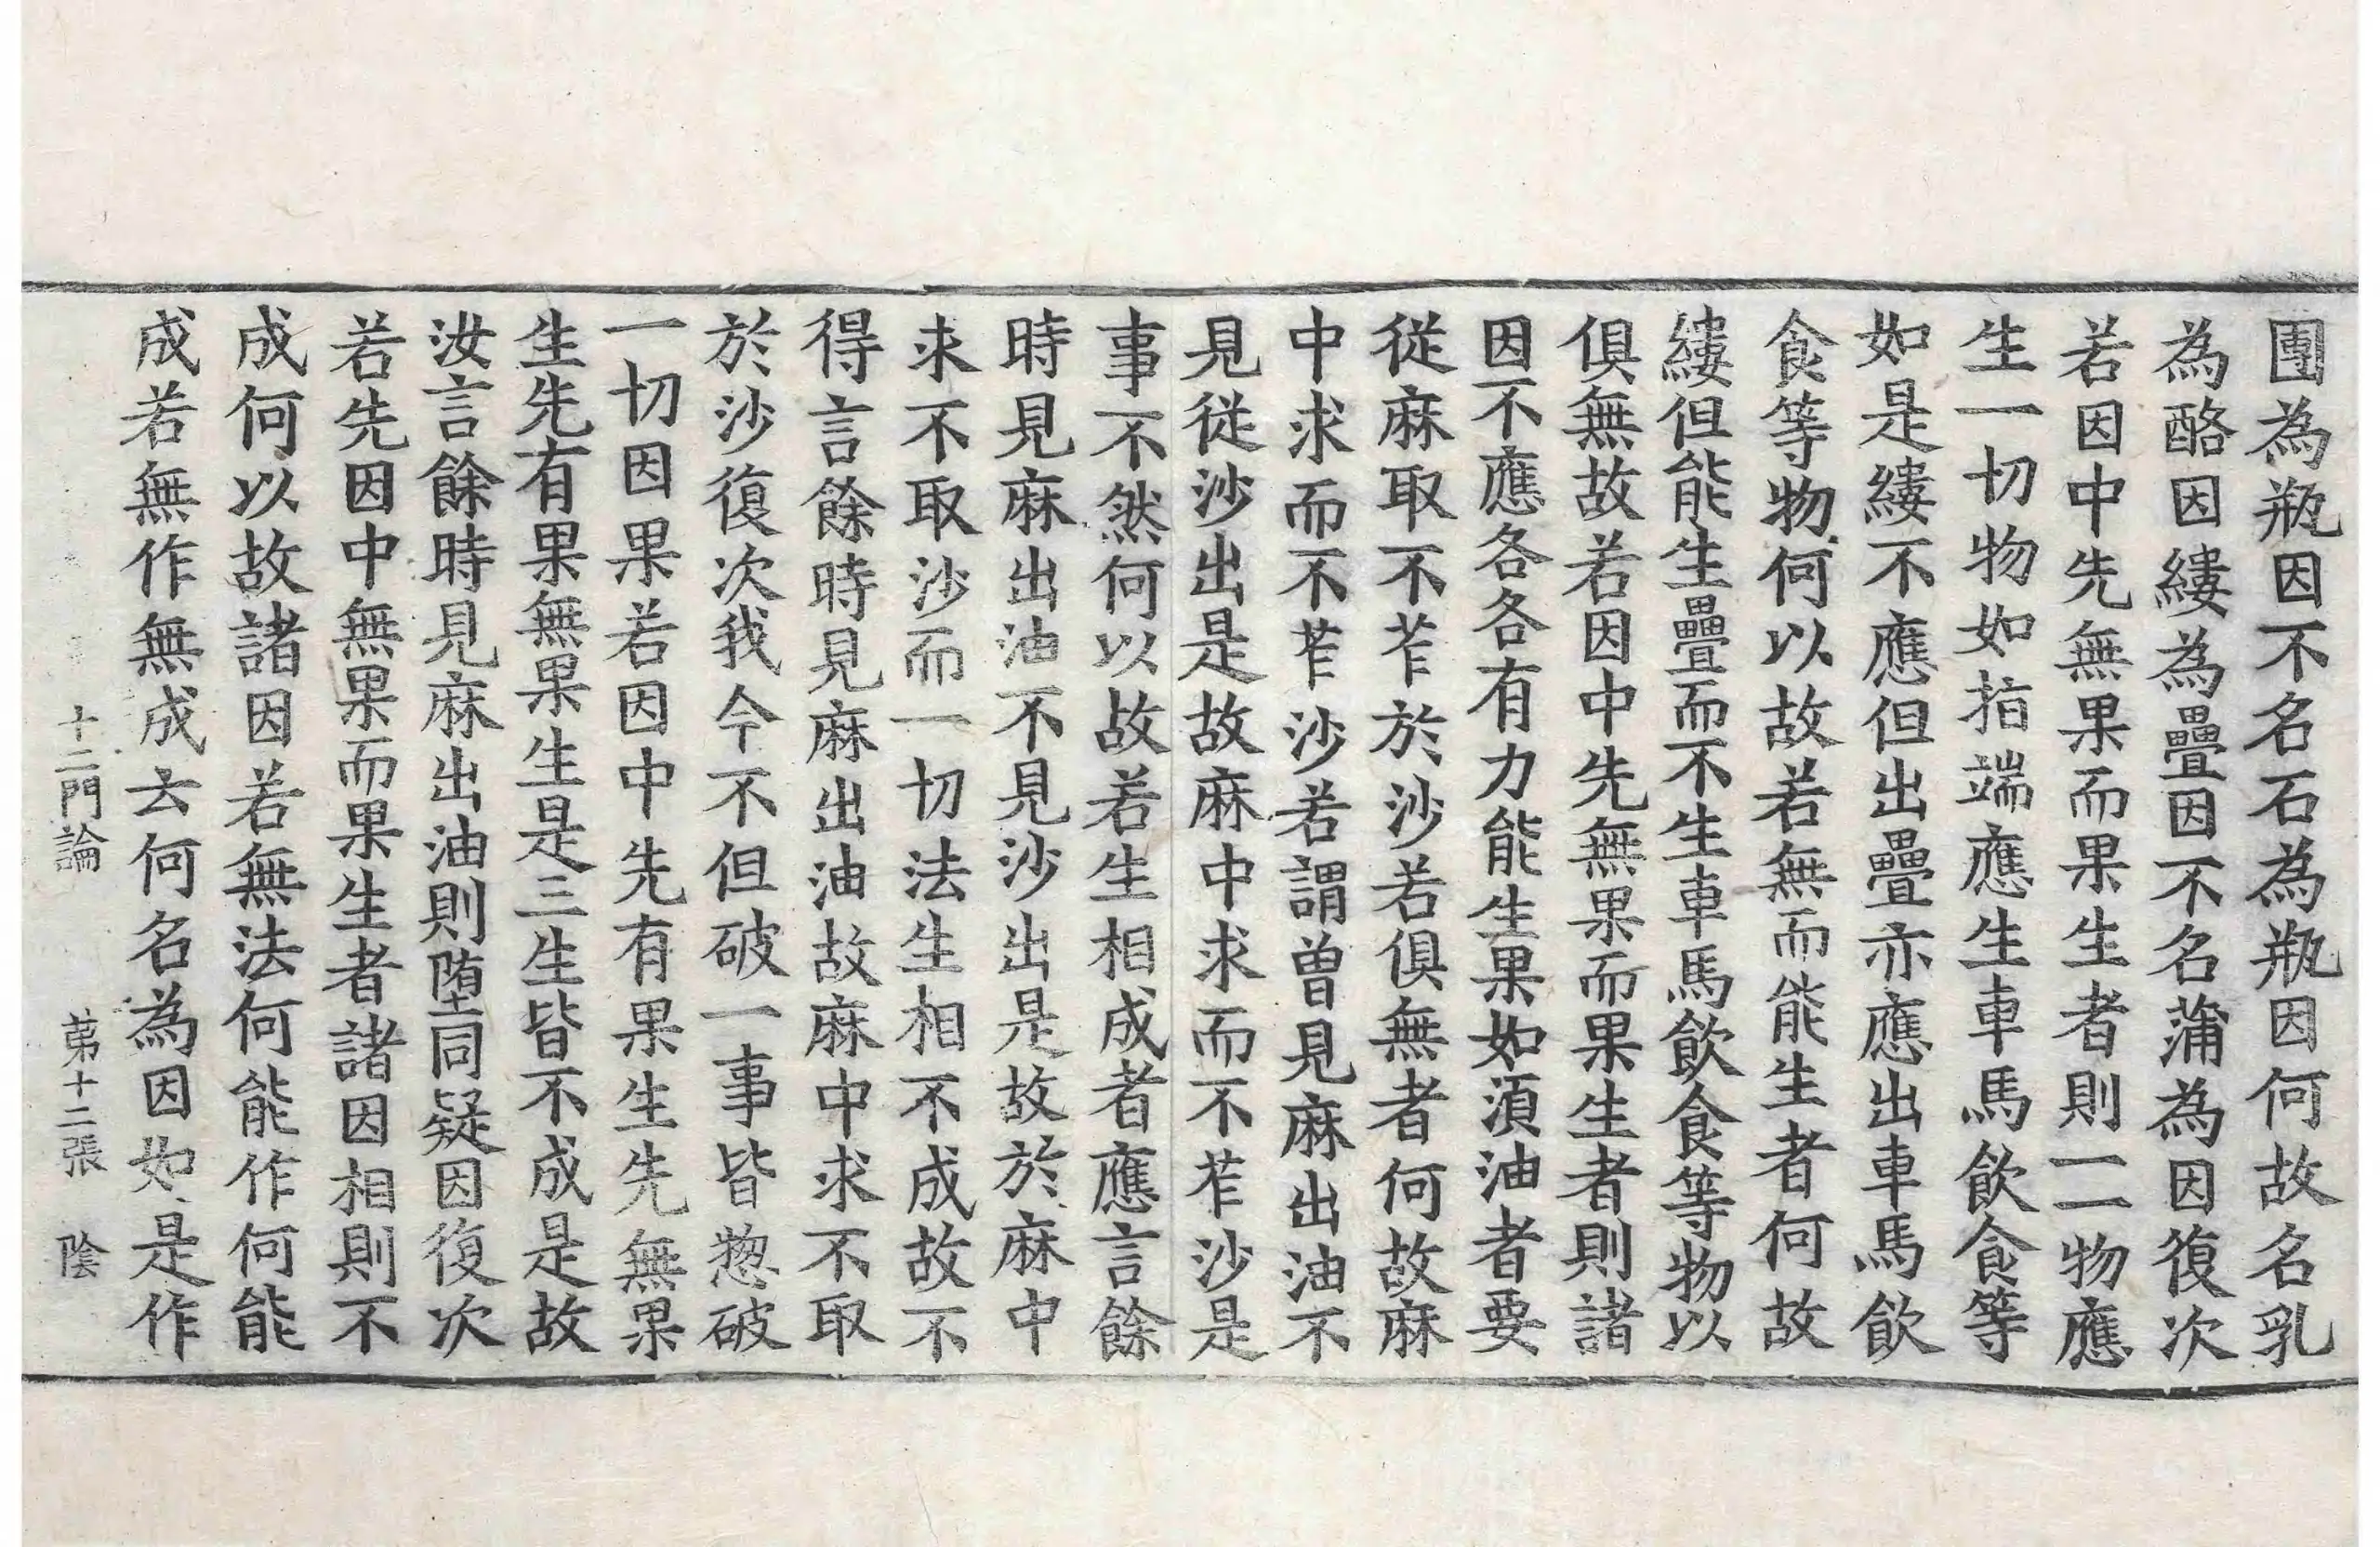 團為瓶因不名石為瓶因何故名乳
為酪因縷為疊因不名蒲為因復次
若因中先無果而果生者則一一物應
生一切物如指端應生車馬飲食等
如是縷不應但出疊亦應出車馬飲
食等物何以故若無而能生者何故
縷但能生疊而不生車馬飲食等物以
俱無故若因中先無果而果生者則諸
因不應各各有力能生果如湏油者要
從麻取不苲於沙若俱無者何故麻
中求而不苲沙若謂曾見麻出油不
見從沙出是故麻中求而不苲沙是
事不然何以故若生相成者應言餘
時見麻出油不見沙出是故於麻中
求不取沙而一切法生相不成故不
得言餘時見麻出油故麻中求不取
於沙復次我今不但破一事皆惣破
一切因果若因中先有果生先無果
生先有果無果生是三生皆不成是故
汝言餘時見麻出油則墮同疑因復次
若先因中無果而果生者諸因相則不
成何以故諸因若無法何能作何能
成若無作無成云何名為因如是作
十二門論　第十二張　陰